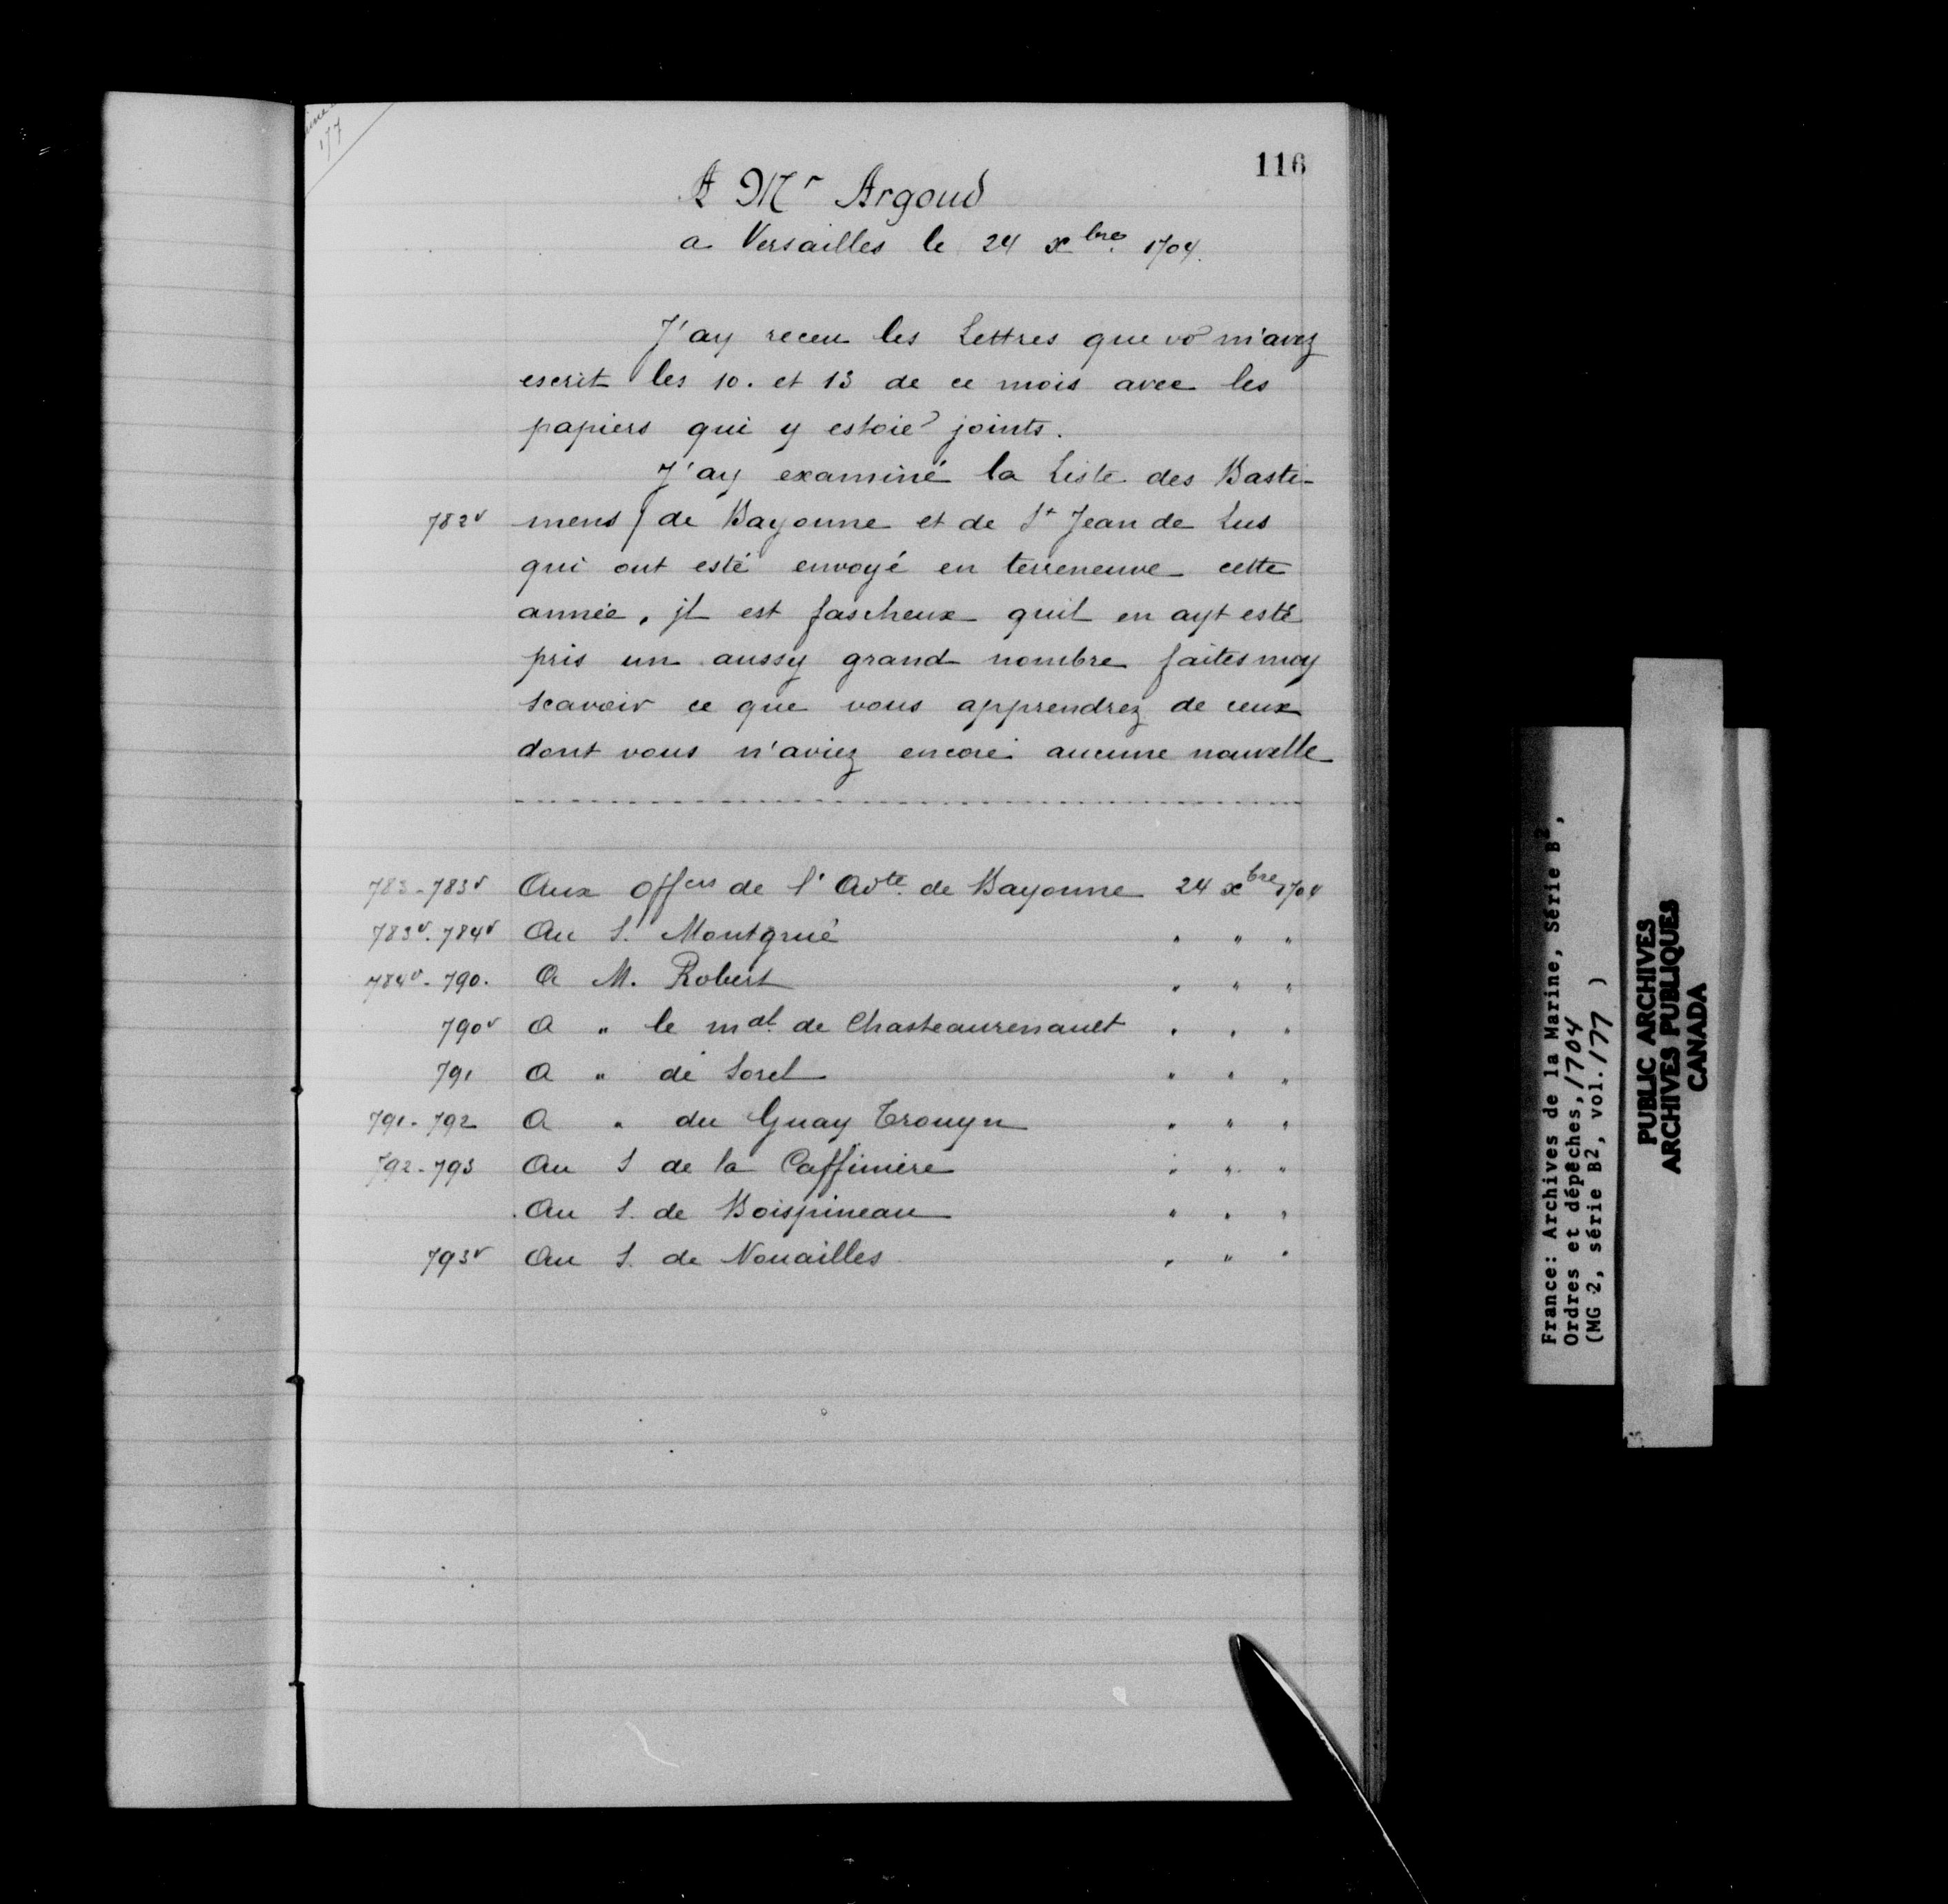 177
116
A Mr Argoud
a Versailles le 24 xbre 1704.
J'ay receu les Lettres que vo m'avez
escrit les 10. et 13 de ce mois avec les
papiers qui y estoie joints.
J'ay examiné la Liste des Basti-
782v mens / de Bayonne et de St Jean de Lus
qui ont esté envoyé en terreneuve cette
année, jl est fascheux quil en ayt esté
pris un aussy grand nombre faites moy
scavoir ce que vous apprendrez de ceux
dont vous n'aviez encore aucune nouvelle
783-783v Aux offers de l'Adté. de Bayonne 24 xbre 1704
783v-784v Au S. Montgrué " " "
784v-790. A M. Robert " " "
790v A " le mal de Chasteaurenault " " "
791 A " de Sorel " " "
791-792 A " du Guay Trouyn " " "
792-793 Au S de la Caffiniere " " "
Au S. de Boispineau " " "
793v Au S. de Nouailles " " "
France: Archives de la Marine, Série B2,
Ordres et dépêches, 1704
(MG 2, série B2, vol. 177 )
PUBLIC ARCHIVES
ARCHIVES PUBLIQUES
CANADA